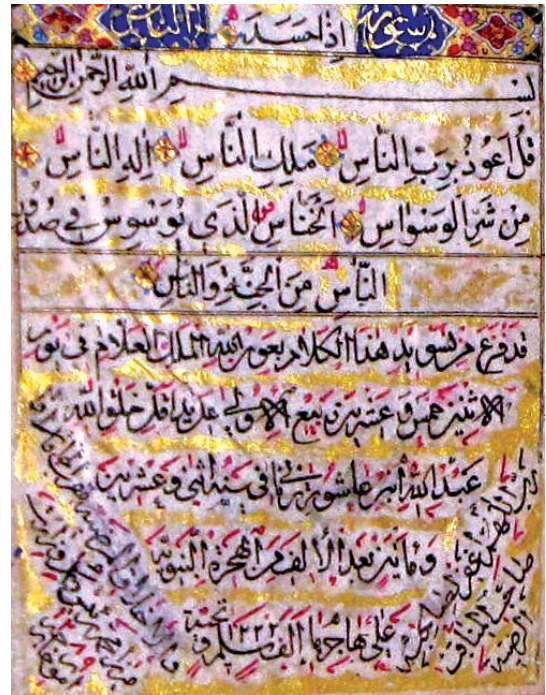 سورة اذا حسد الناس
بسم الله الرحمن الرحيم
قُلْ اَعُوذُ بِرَبِّ النَّاسِ مَلِكِ النَّاسِ اِلٰهِ النَّاسِ
مِنْ شَرِّ الْوَسْوَاسِ الْخَنَّاسِ الَّذَى يُوَسْوِسُ فِى صُدُورِ
النَّاسِ مِنَ الْجِنَّةِ وَالنَّاسِ
قد فرغ من تسويد هذا الكلام بعون الله الملك العلام فى يوم
الاثنين خمس وعشرين ربيع الاول على يد اقل خلق الله
عبد الله ابن عاشور فى سنة اثنى وعشرين
ومايتين بعد الالف من الهجرة النبوية
على هاجرها الف سلم وتحية ١٢٢٢